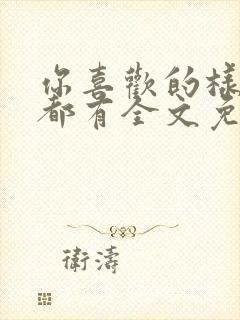 你喜歡的樣
都有全文免
衛濤